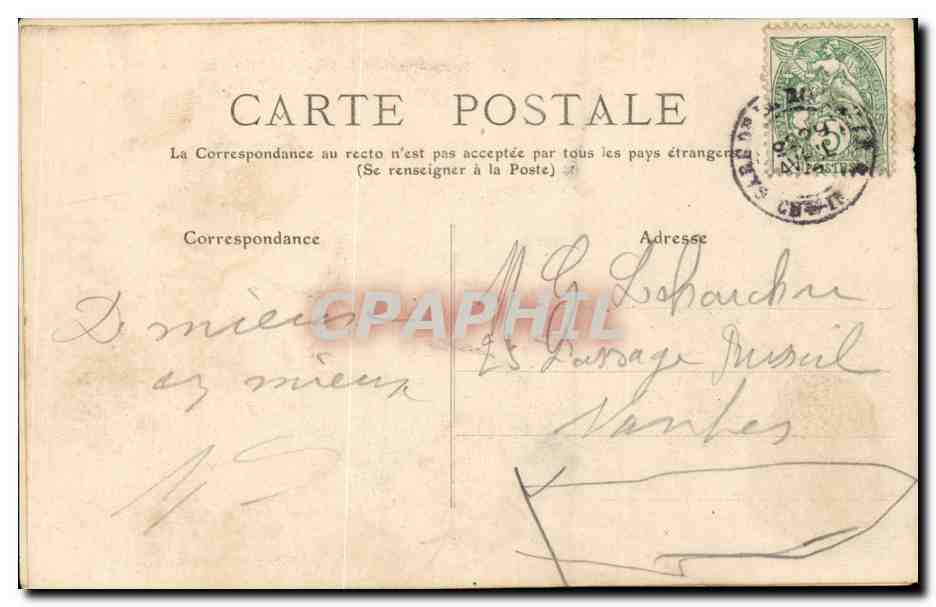 CARTE POSTALE
La Correspondance au recto n'est pas acceptée par tous les pays étrangers
(Se renseigner à la Poste)
Correspondance
Adresse
De mieux
en mieux
M G
25 Passage Russeil
Nantes
CPAPHIL